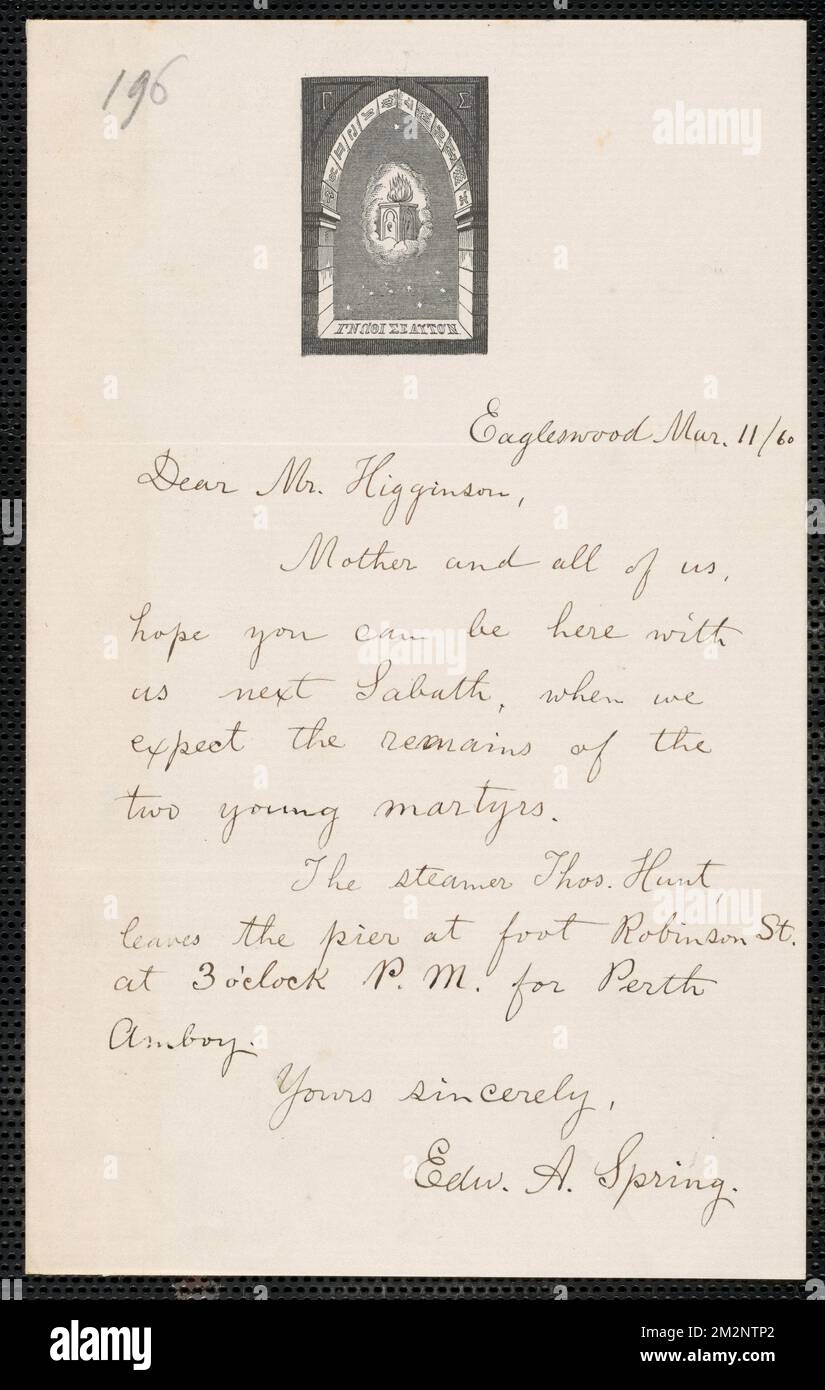 196
Γ Σ
ΓΝΩΘΙ ΣΕΑΥΤΟΝ
Eagleswood Mar. 11/60
Dear Mr. Higginson,
Mother and all of us,
hope you can be here with
us next Sabath, when we
expect the remains of the
two young martyrs.
The steamer Thos. Hunt,
leaves the pier at foot Robinson St.
at 3 o'clock P. M. for Perth
Amboy.
Yours sincerely,
Edw. A. Spring.
alamy
alamy
Image ID: 2M2NTP2
www.alamy.com